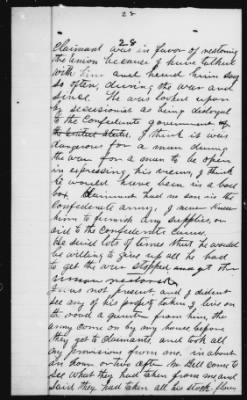 28
28
Claimant was in favor of restoring
the Union because I have talked
with him and heard him say
so often, during the war and
since. He was looked upon
by secessionist as being disloyal
to the Confederate government
the United States. I think is was
dangerous for a man during
the war for a man to be open
in expressing his views, I think
he would have been in a bad
box. Claimant had no son in the
Confederate army, I never knew
him to furnish any supplies, or
aid to the Confederate
He said lots of times that he would
be willing to give up all he had
to get the war stopped and get the
Union restored
I was not present and I didn't
see any of his property taken I live on
the road a quarter from him, the
army come on by my house before
they got to claimants, and took all
my provisions from me. in about
an hour or two after Mr Bell come to
see what they had taken from me and
said they had taken all his stock, flour